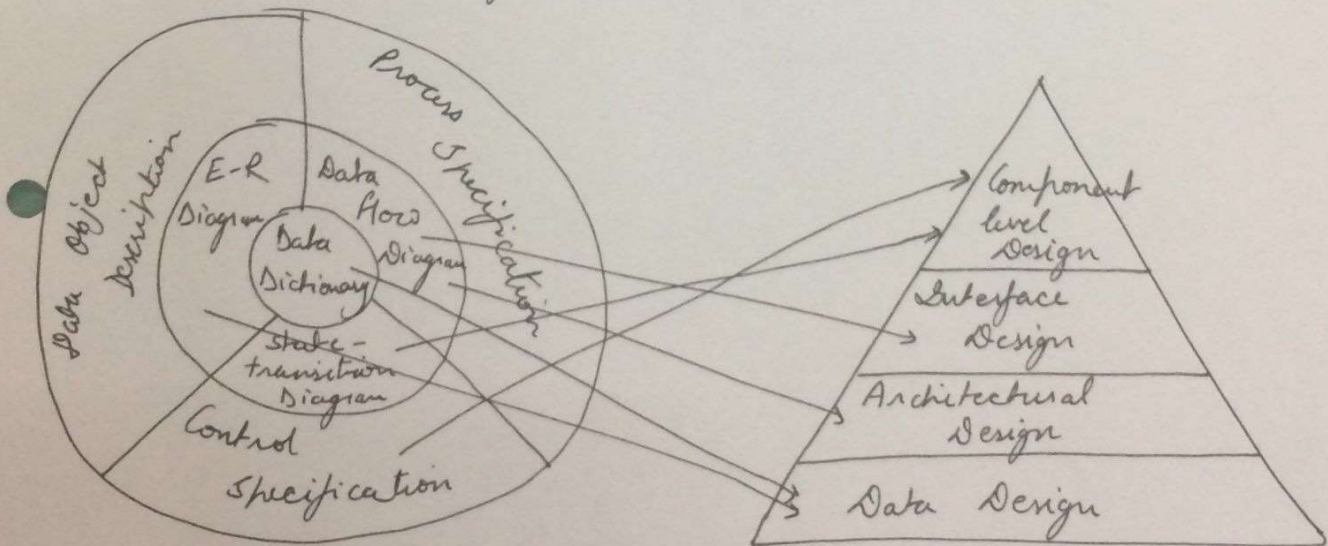 Data Object
Description
Process Specification
E-R
Diagram
Data
flow
Diagram
Data
Dictionary
State-
transition
Diagram
Control
Specification
Component
level
Design
Interface
Design
Architectural
Design
Data Design